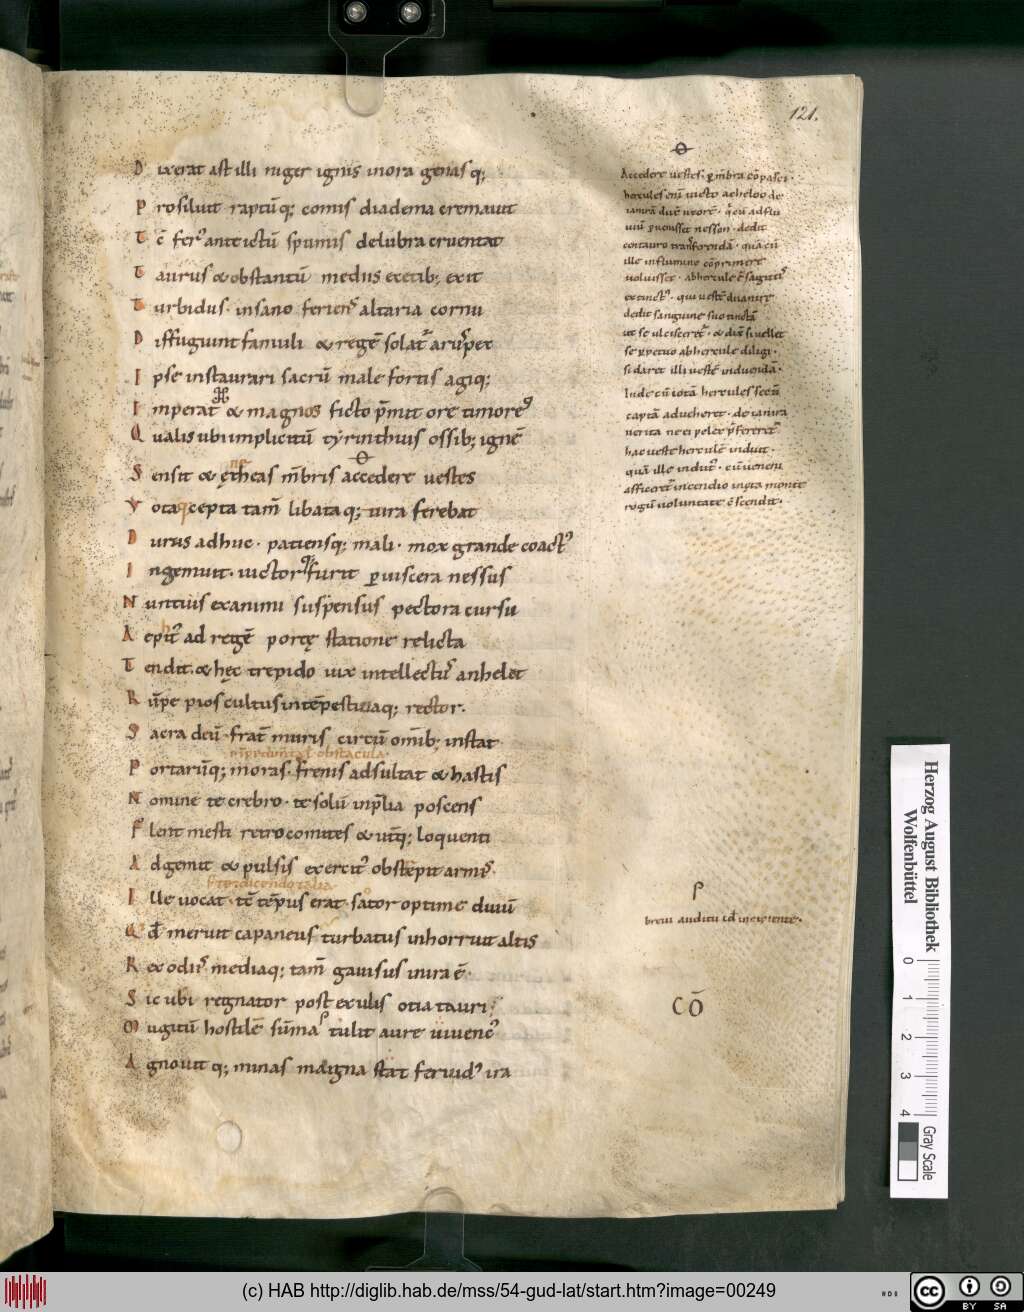 121.
D ixerat ast illi niger ignis inora genasq;
P rosiluit raptūq; comis diadema cremauit
T c̄ fer᾽ ante ictū spumis delubra cruentat
T aurus & obstantū mediis e tectib; exit
T urbidus· insano feriens altaria cornu
D iffugiunt famuli & regē solat᷑ arūspex
I pse instaurari sacrū male fortis agiq;
I mperat & magnos ficto p̄mit ore timores
Q ualis ubi implicitū tyrinthius ossib; ignē
S ensit & ętheas m̄bris accedere uestes
V otaq cepta tam̄ libataq; tura ferebat
D urus adhuc· patiensq; mali· mox grande coact᾽
I ngemuit· uictorq; furit ꝑ uiscera nessus
N untius exanimi suspensus pectora cursu
A epit᾽ ad regē portę statione relicta
T endit· & hęc trepido uix intellect᾽ anhelet
R ūpe pios cultus intēpestiuaq; rector·
S acra deū· frat̄ muris circū om̄ib; instat
nr̄i p̄dunt̄ obstacula·
P ortarūq; moras· frenis adsultat & hastis
N omine te crebro· te solū inp̄lia poscens
F lent mesti retro comites & ut̄q; loquenti
A dgemit & pulsis exercit᾽ obstrepit armis·
I lle uocat· tc̄ tēpus erat· sator optime diuū
Q d̄ meruit capaneus turbatus inhorruit altis
R ex odiis mediaq; tam̄ gauisus in ira ē·
S ic ubi regnator post exulis otia tauri
M ugitū hostilē sūma tulit aure iuuenc᾽
A gnouitq; minas magna stat feruid᾽ ira
Accedere uestes· ꝑ m̄bra cōpasci·
hercules eni᷑ uicto acheloo de
ianirā dux̄ uxore·
dedit
centauro transferendā· quā cū
ille influmine cōprimere
uoluisset· ab hercule ē sagittis
extinct᾽· qui uestē
dedit sanguine suo tinctā
ut se ulcisceret᷑· & dix̄ si uellet
se ꝑpetuo ab hercule diligi·
si daret illi uestē induendā·
Inde cū iotā hercules secū
captā aducheret· deianira
uerita ne ei pelex p̄ferret᷑
hac ueste herculē induit·
quā ille indut᾽· cū uenenu
afficeret᷑ incendio iuxta monte
rogū uoluntate c̄scendit·
breui auditu id̄ incipiente·
CŌ
Herzog August Bibliothek
Wolfenbüttel
0 1 2 3 4
Gray Scale
(c) HAB http://diglib.hab.de/mss/54-gud-lat/start.htm?image=00249
cc BY SA